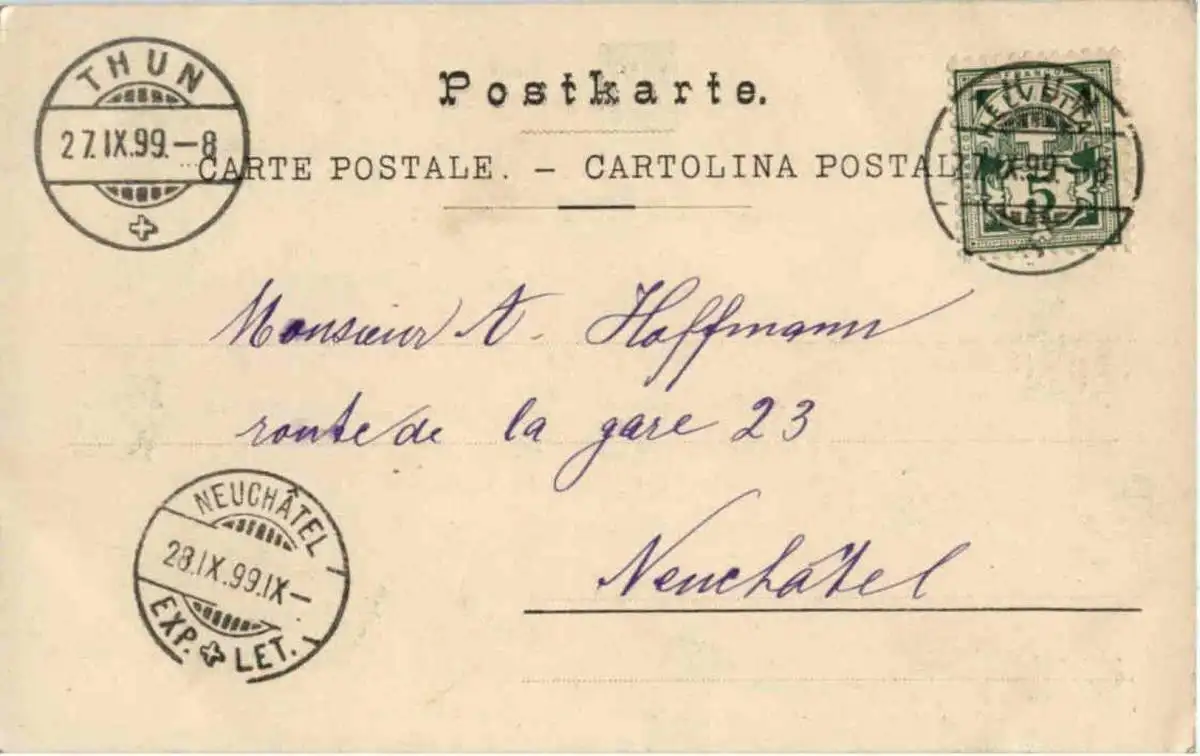 THUN
27.IX.99.–8
Postkarte.
CARTE POSTALE. – CARTOLINA POSTAL
HELVETIA
5
THUN
IX.99.–8
Monsieur A. Hoffmann
route de la gare 23
Neuchâtel
NEUCHÂTEL
28.IX.99.IX–
EXP. LET.